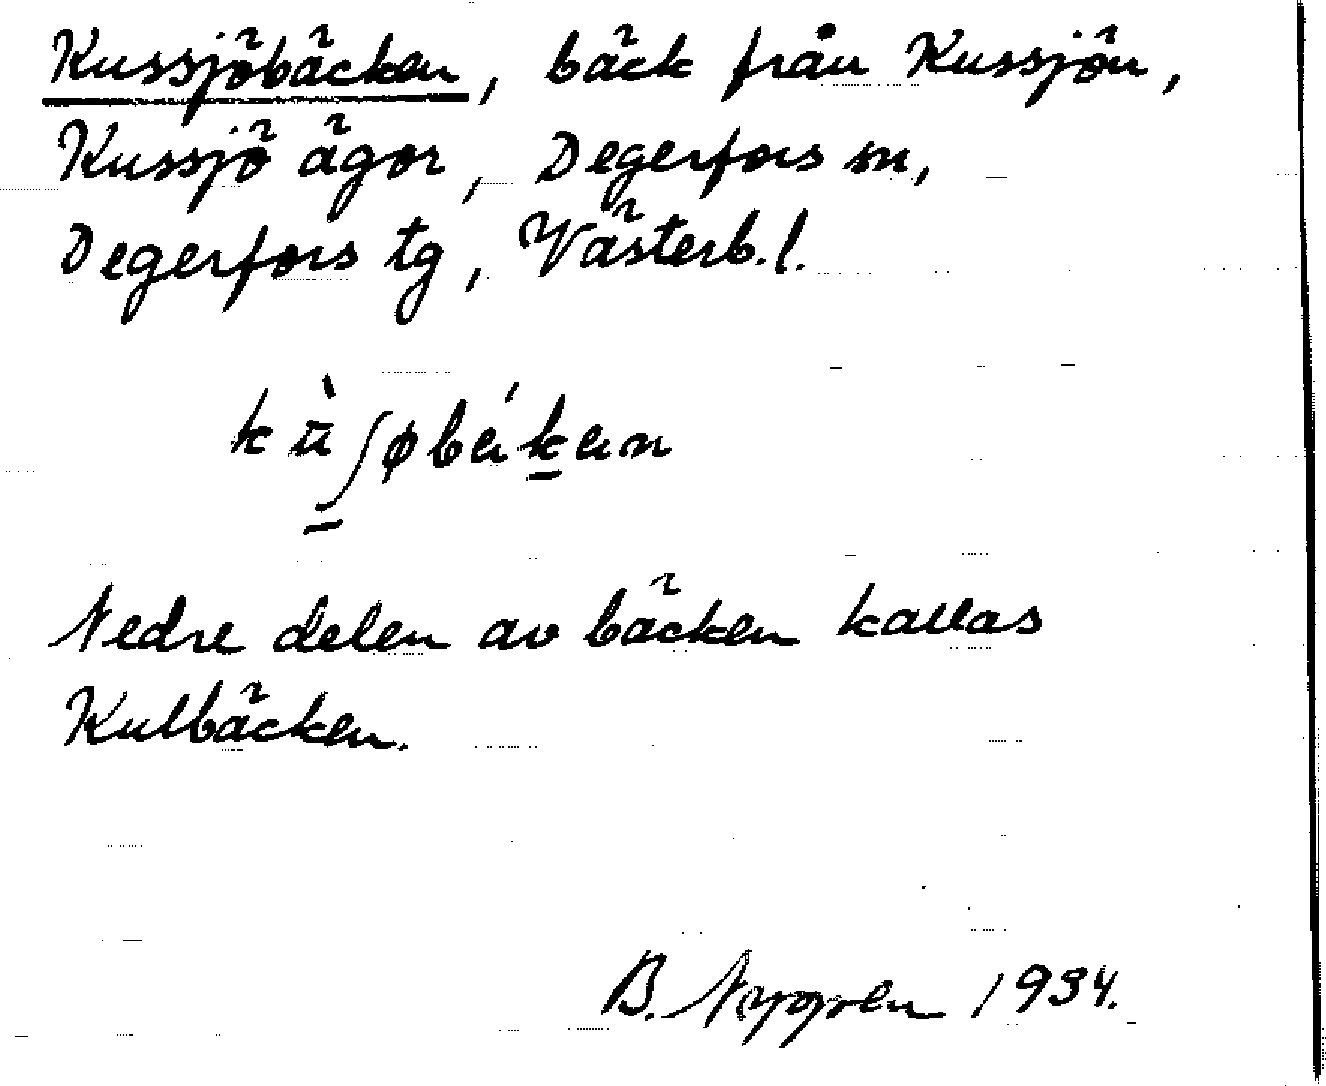 Kussjöbäcken, bäck från Kussjön,
Kussjö ägor, Degerfors sn,
Degerfors tg, Västerb. l.
Nedre delen av bäcken kallas
Kulbäcken.
B. Nygren 1934.